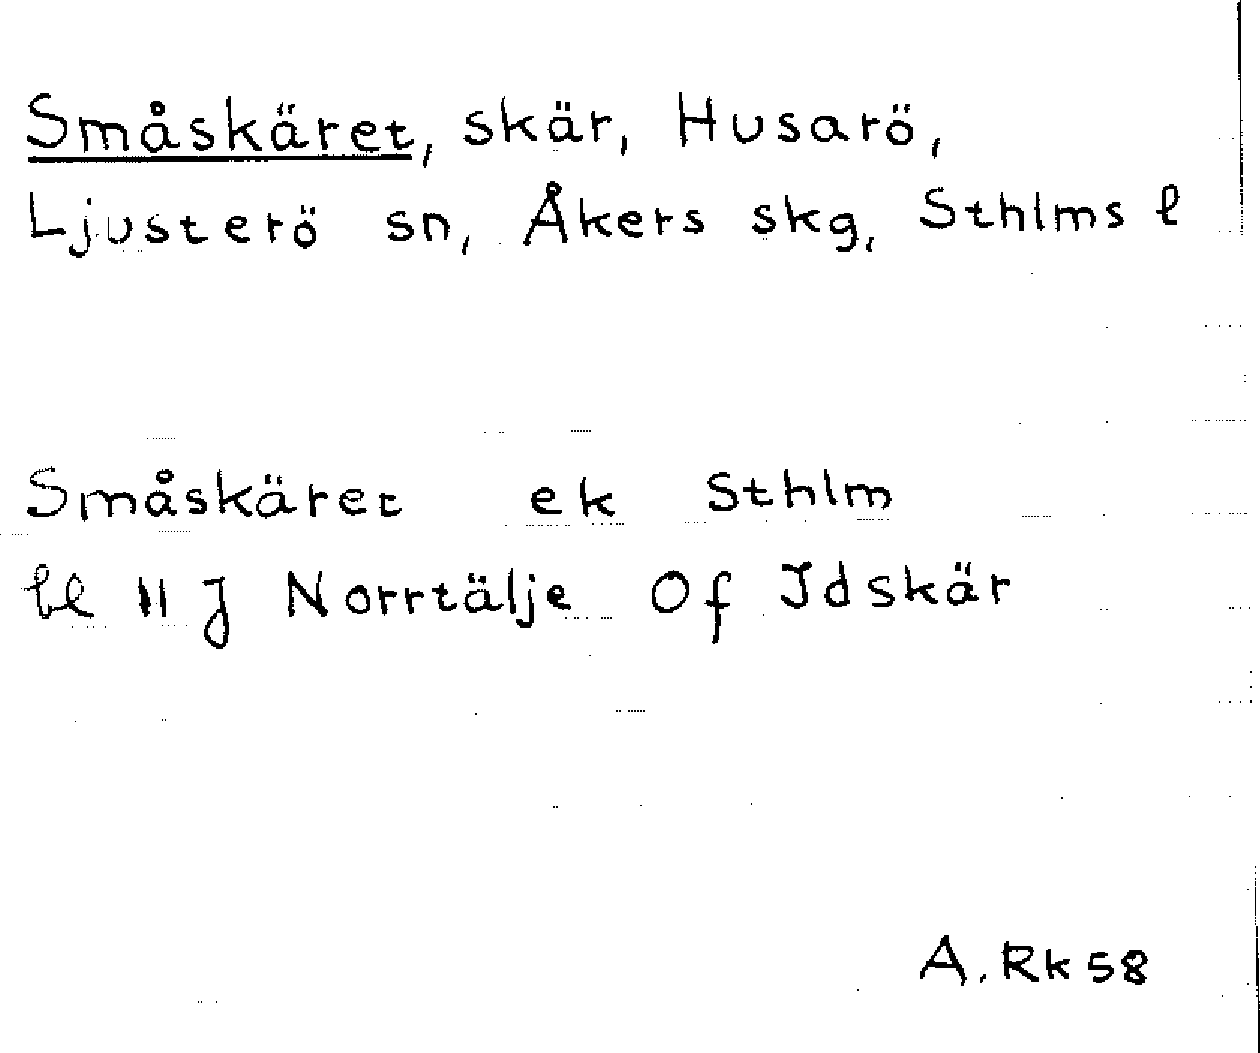 Småskäret, skär, Husarö,
Ljusterö sn, Åkers skg, Sthlms l
Småskäret ek Sthlm
bl 11 J Norrtälje Of Idskär
A. Rk 58